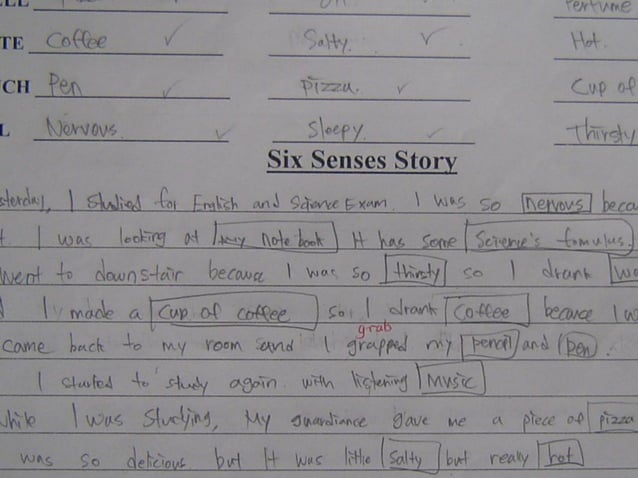 Perfume
TE Coffee ✓ Salty. ✓ Hot.
CH Pen ✓ Pizza. ✓ Cup of
L Nervous. ✓ Sleepy. ✓ Thirsty
Six Senses Story
sterday, I Studied for English and Science Exam. I was so nervous becau
I was looking at note book It has some Science's fomulus.
went to downstair because I was so thirsty so I drank
I made a cup of coffee so, I drank coffee because I w
grab
came back to my room and I grapped my pencil and pen.
I started to study again with listening Music
while I was studying, My guardiance gave me a piece of pizza
was so delicious but It was little salty but really hot